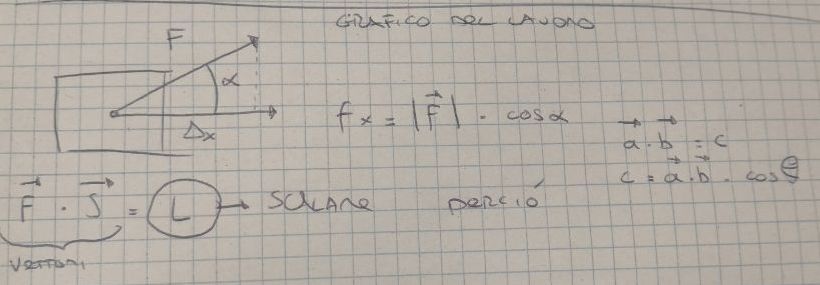 GRAFICO DEL LAVORO
F
α
Δx
fx = |F⃗| · cosα
a⃗ · b⃗ = c
c = a⃗ · b⃗ · cosθ
F⃗ · S⃗ = L → SCALARE perciò
VETTORI